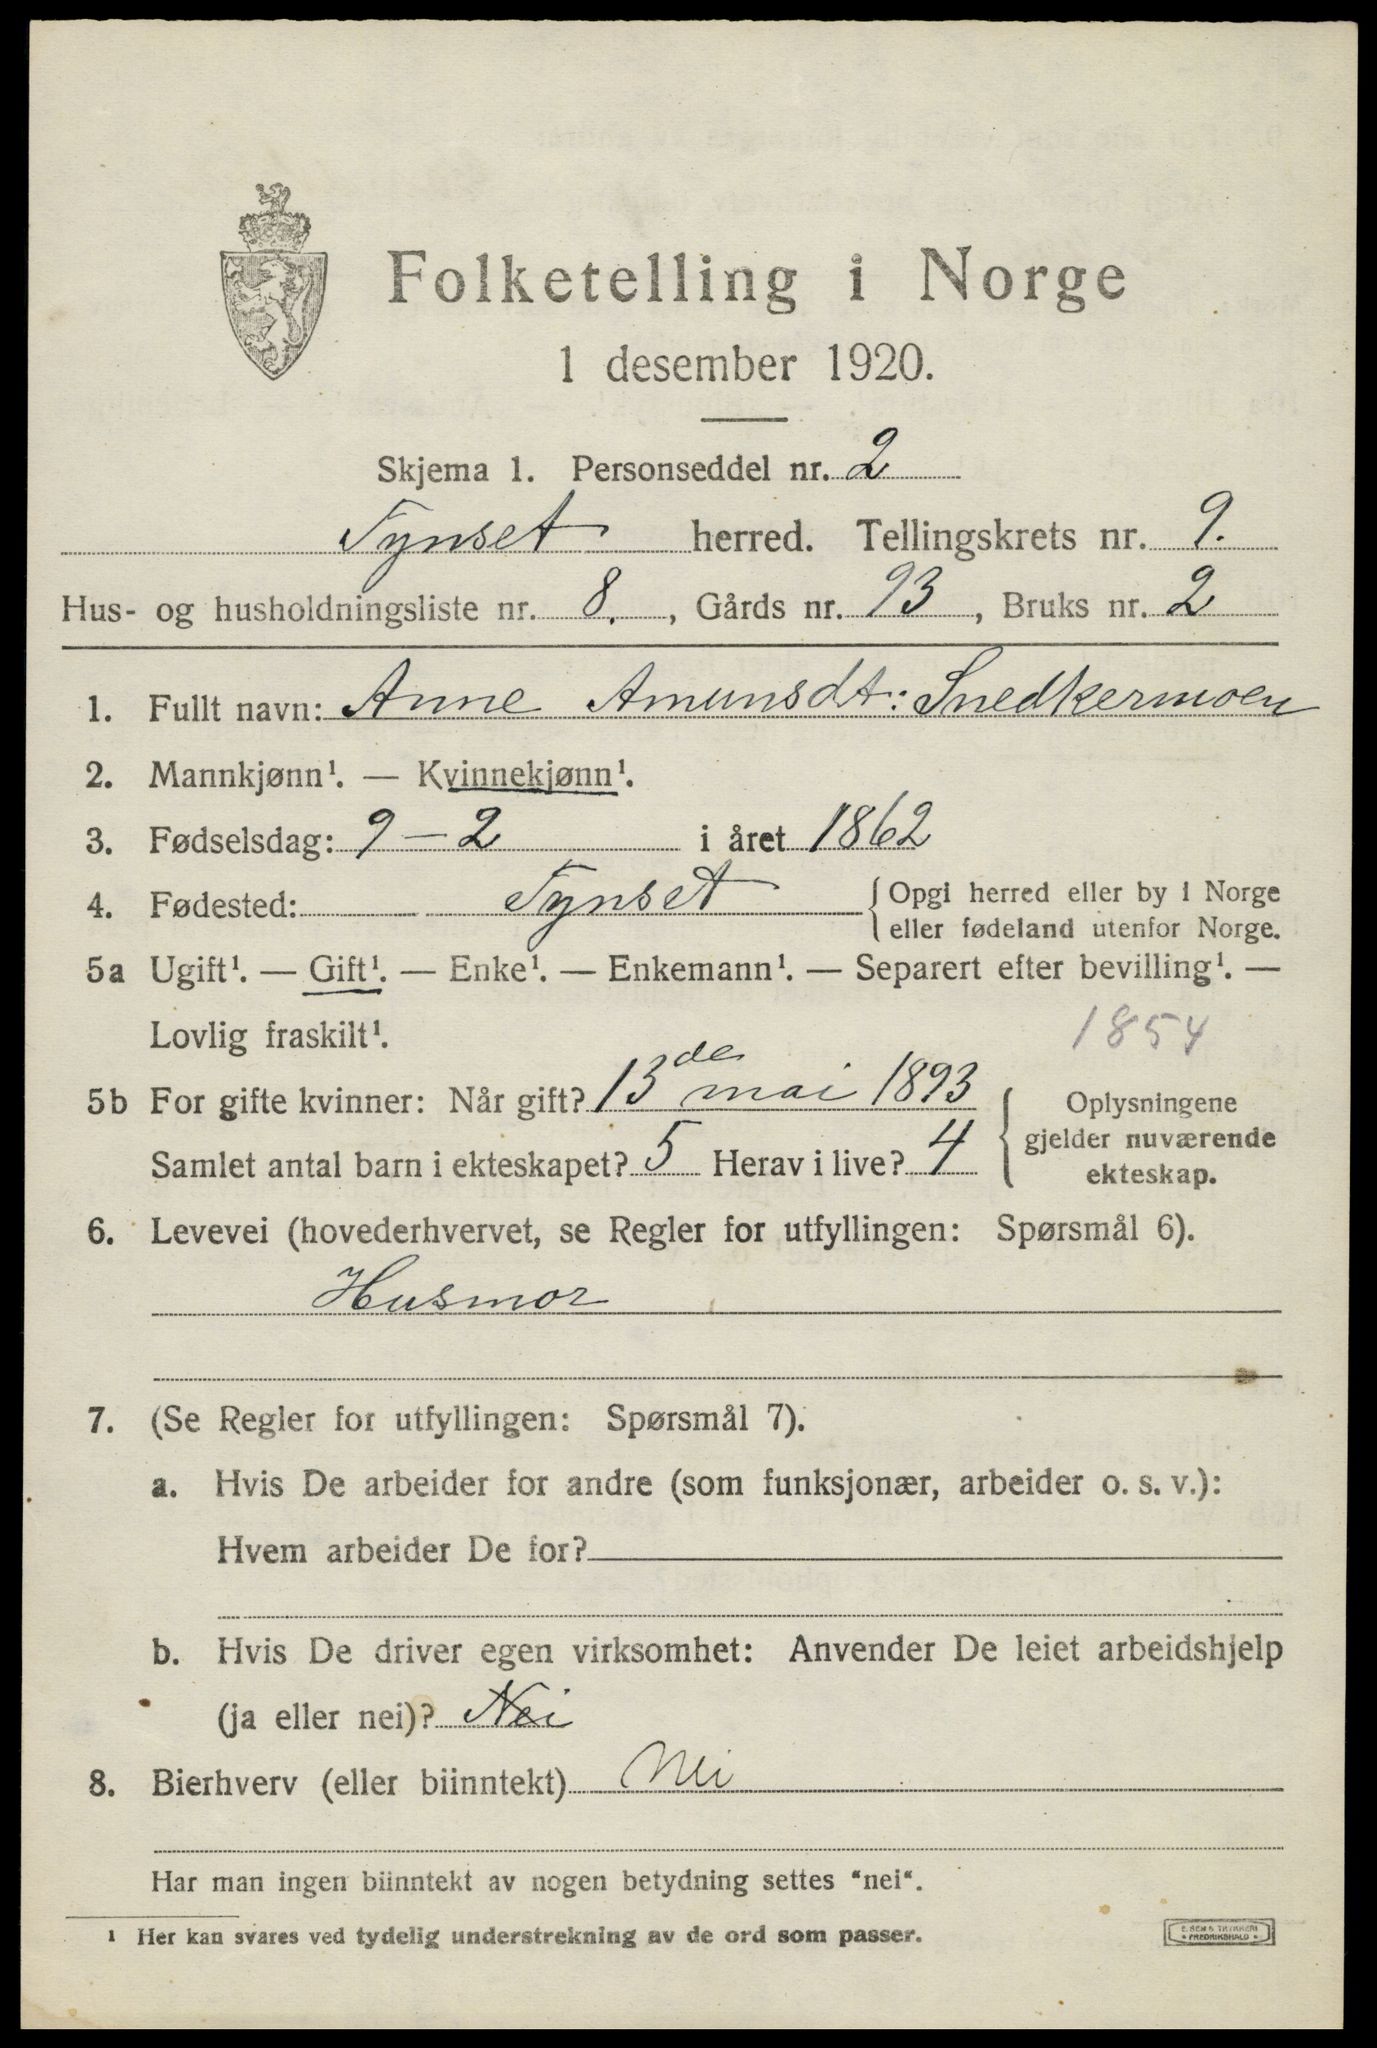 Folketelling i Norge
1 desember 1920.
Skjema 1. Personseddel nr. 2
Tynset herred. Tellingskrets nr. 9.
Hus- og husholdningsliste nr. 8. , Gårds nr. 93 , Bruks nr. 2
1. Fullt navn: Anne Amunsdt: Snedkermoen
2. Mannkjønn¹. — Kvinnekjønn¹.
3. Fødselsdag: 9 – 2 i året 1862
4. Fødested: Tynset { Opgi herred eller by i Norge
eller fødeland utenfor Norge.
5a Ugift¹. — Gift¹. — Enke¹. — Enkemann¹. — Separert efter bevilling¹. —
Lovlig fraskilt¹.
1854
5b For gifte kvinner: Når gift? 13de mai 1893
Samlet antal barn i ekteskapet? 5 Herav i live? 4
{ Oplysningene
gjelder nuværende
ekteskap.
6. Levevei (hovederhvervet, se Regler for utfyllingen: Spørsmål 6).
Husmor
7. (Se Regler for utfyllingen: Spørsmål 7).
a. Hvis De arbeider for andre (som funksjonær, arbeider o. s. v.):
Hvem arbeider De for?
b. Hvis De driver egen virksomhet: Anvender De leiet arbeidshjelp
(ja eller nei)? Nei
8. Bierhverv (eller biinntekt) Nei
Har man ingen biinntekt av nogen betydning settes "nei".
¹ Her kan svares ved tydelig understrekning av de ord som passer.
E. SEM'S TRYKKERI
• FREDRIKSHALD •